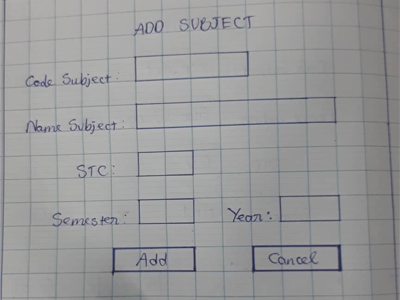 ADD SUBJECT
Code Subject:
Name Subject:
STC:
Semester: Year:
Add Cancel